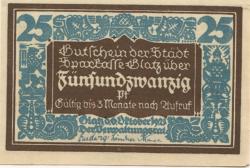 25
25
Gutschein der Stadt
Sparkasse Glatz über
Fünfundzwanzig
Pf
Gültig bis 3 Monate nach Aufruf
Glatz Oktober
der Verwaltungsrat